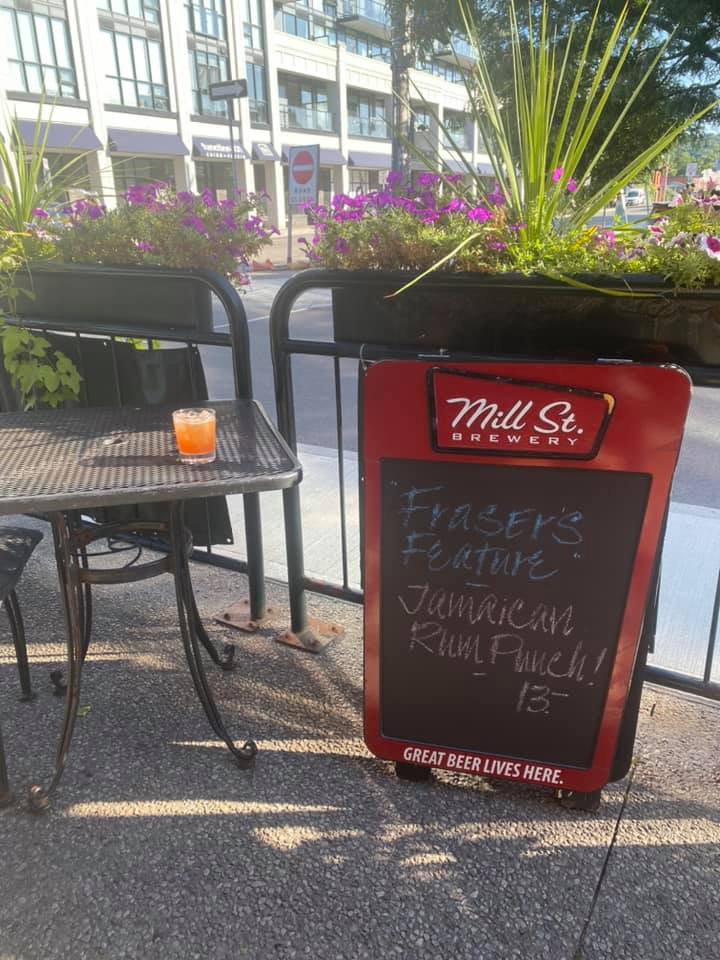 Mill St.
BREWERY
"Fraser's
Feature"
Jamaican
Rum Punch!
13-
GREAT BEER LIVES HERE.